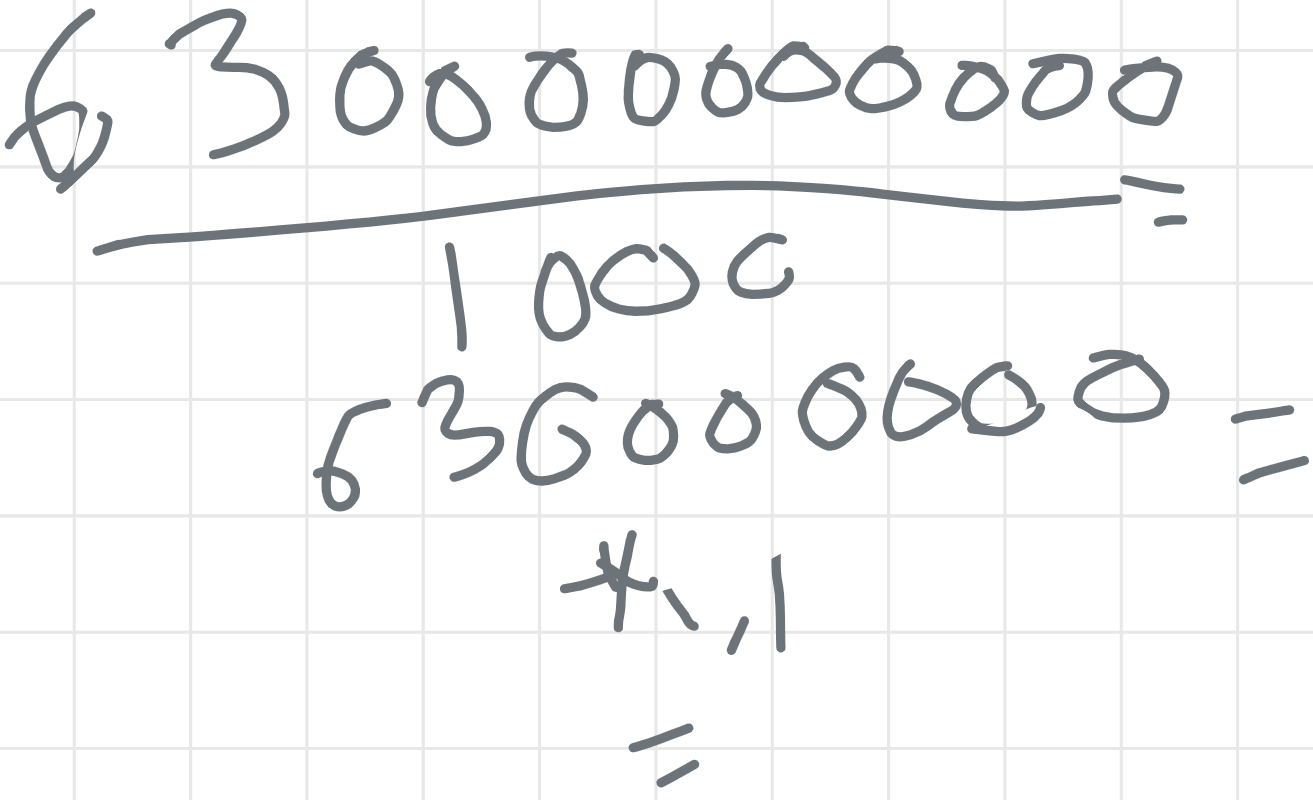 630000000000 =
1000
636000000 =
* ,1
=